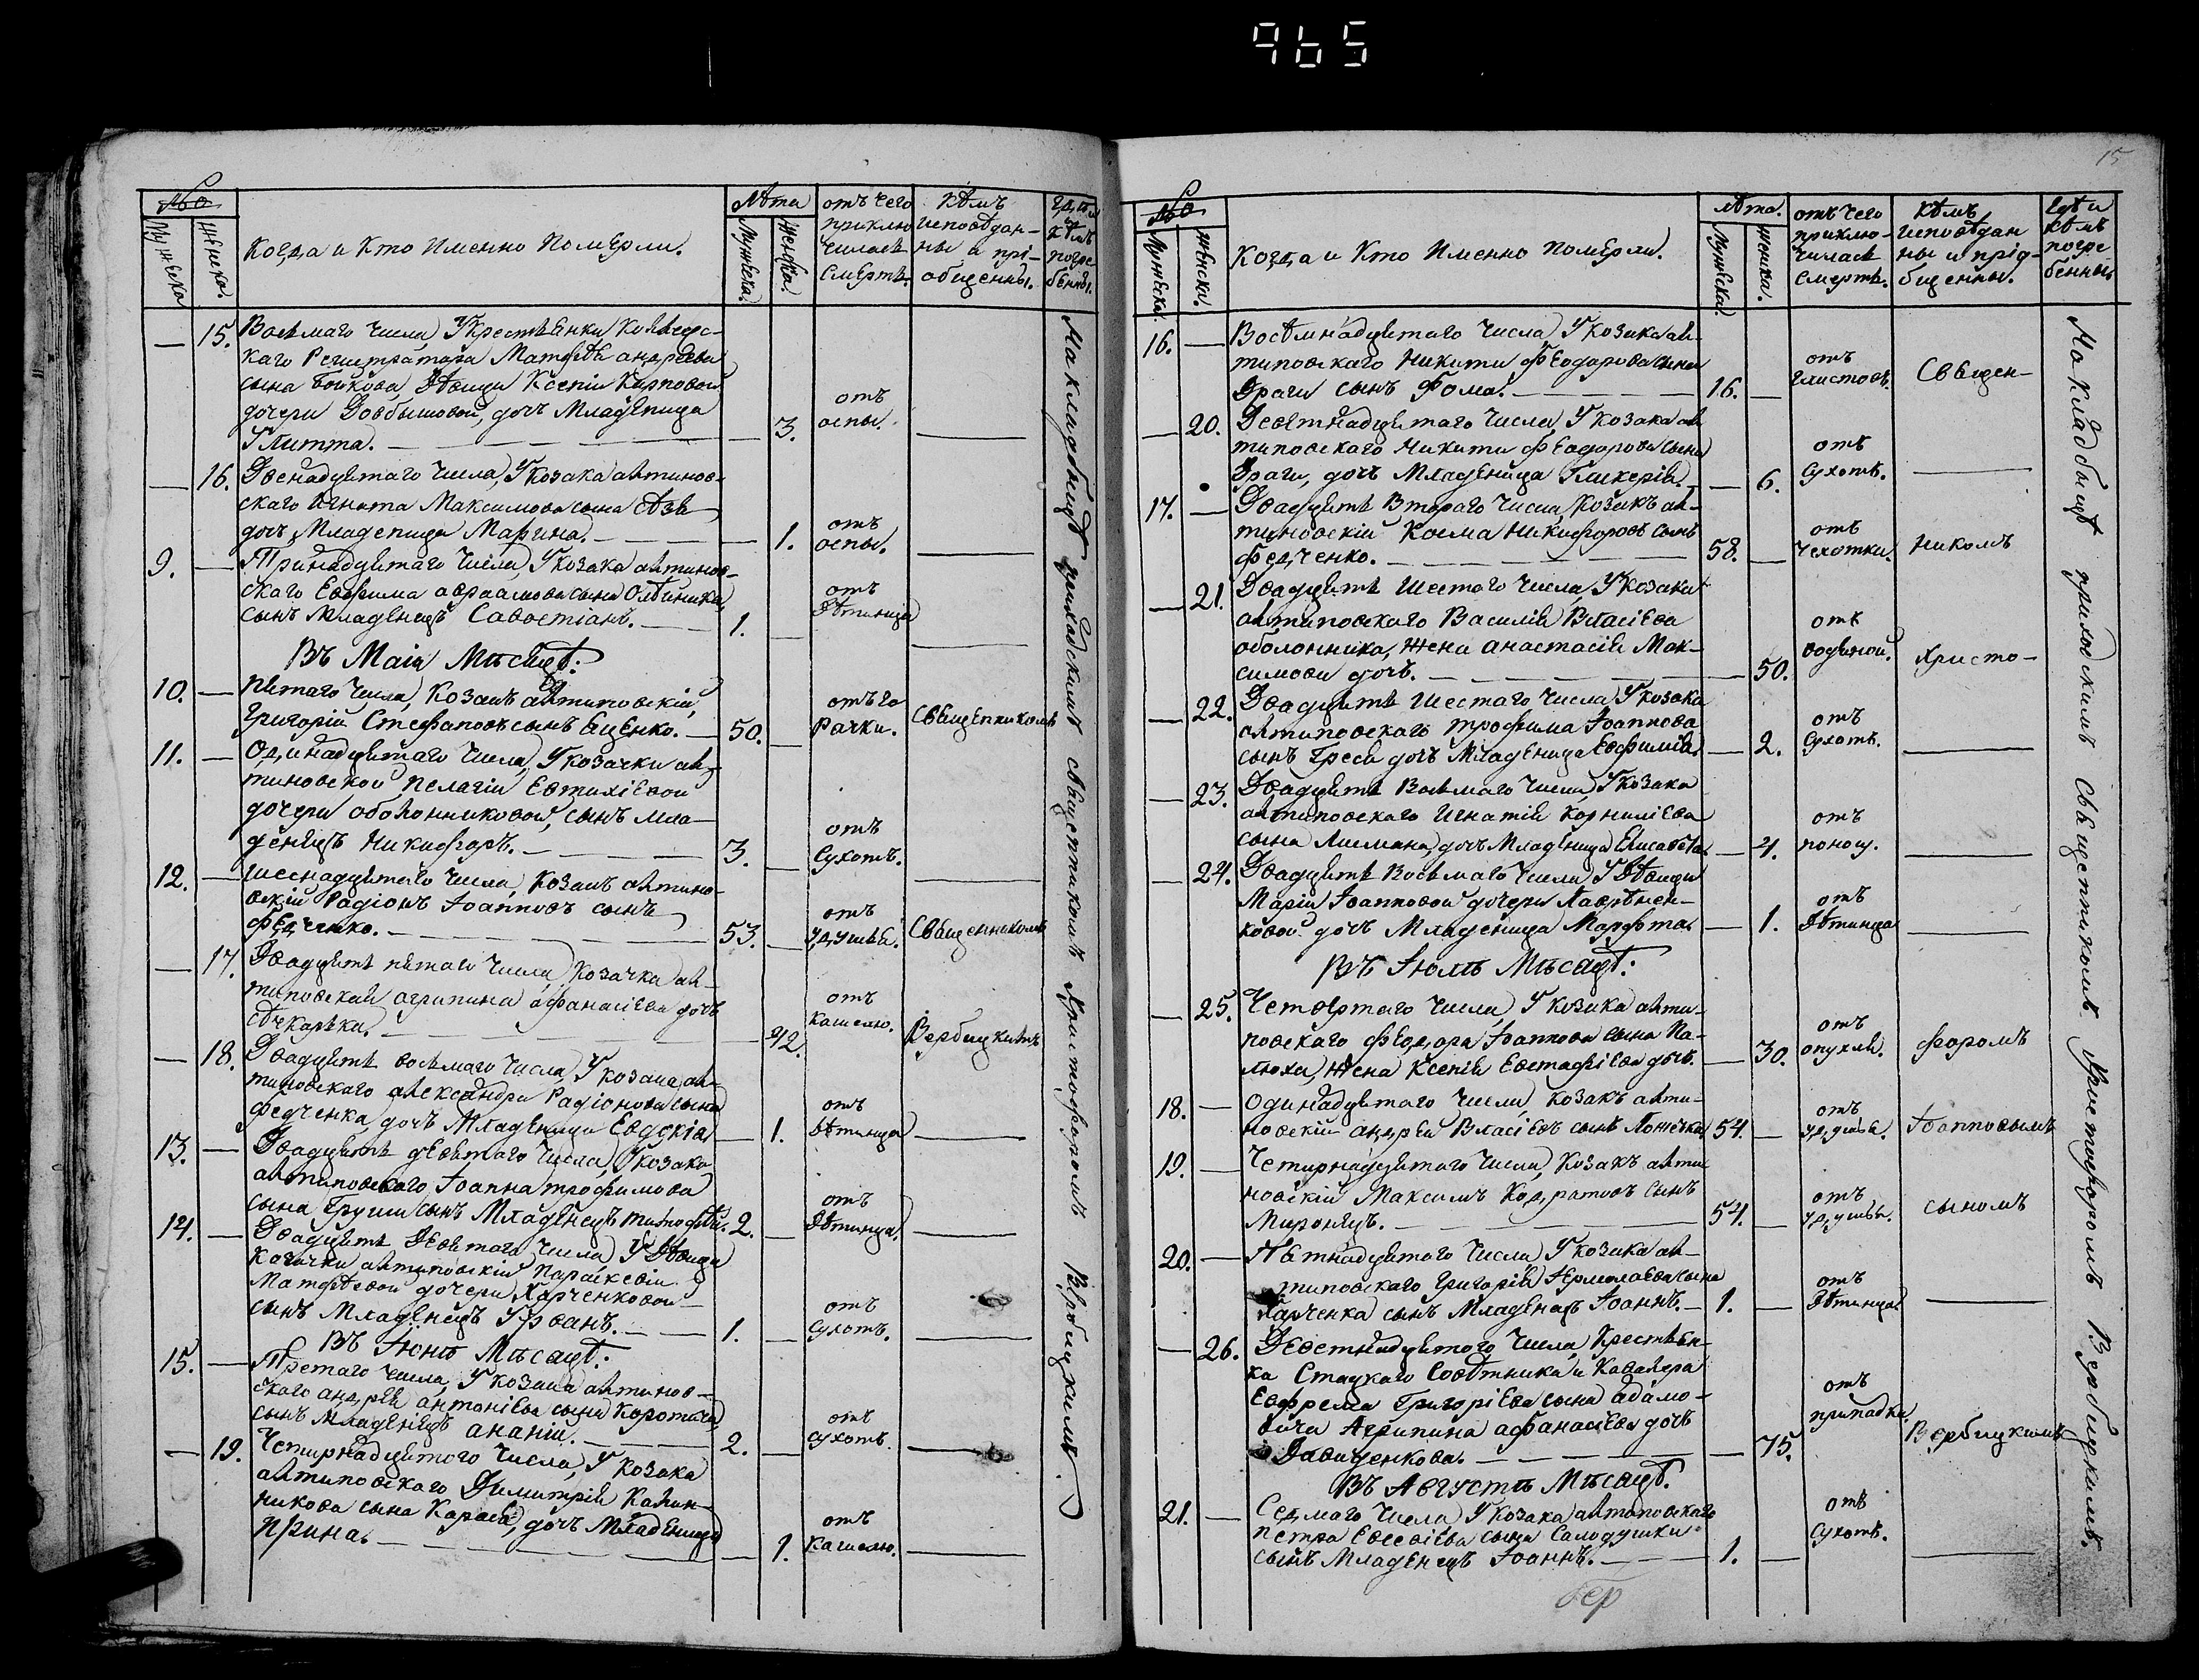 965
15
№
Мужеска
Женска.
Когда и кто именно померли.
Лѣта
Мужеска.
Женска.
отъ чего приключилась смерть.
Кѣмъ исповѣданы и пріобщены.
Гдѣ и кѣмъ погребены.
— 15. Восьмаго числа, У крестьянки Коллежс-
каго Регистратора Матфѣя андреева
сына Бойкова, Дѣвици Ксеніи Карповой
дочери Довбышовой, дочъ Младеница
Улитта. — — 3. отъ оспы. —
— 16. Двенадцятаго числа, У козака антинов-
скаго Игната Максимова сына
дочъ Младеница Марина. — — 1. отъ оспы. —
9. — Тринадцятаго числа, У козака антинов-
скаго Евфима авраамова сына Олѣйника,
сынъ Младенецъ Савостіанъ. — 1. — отъ дѣтинца —
Въ Маіи Мѣсяцѣ:
10. — Пятаго числа, козакъ антиповскій,
Григорій Стефановъ сынъ Яценко. — 50. — отъ горачки. Священникомъ
11. — Одинадцятаго числа, У козачки ан-
типовской Пелагіи Евтихіевой
дочери оболонниковой, сынъ мла-
денецъ Никифоръ. — 3. — отъ Сухотъ. —
12. — Шеснадцятаго числа, козакъ антипо-
вскій Радіонъ Іоанновъ сынъ
Федченко. — 53. — отъ удушья. Священникомъ
— 17. Двадцять пятаго числа, козачка ан-
типовская агрипина афанасіева дочъ
Сѣчкарьки. — — 42. отъ кашелю. Вербицкимъ
— 18. Двадцять восьмаго числа, У козака ан-
типовскаго александра Радіонова сына
Федченка, дочъ Младеница Евдокія — 1. отъ дѣтинца —
13. — Двадцять девятаго числа, У козака
антиповскаго Іоанна трофимова
сына Груши сынъ Младенецъ тимофей. 2. — отъ Дѣтинца. —
14. — Двадцять Девятаго числа, У Дѣвици
козачки антиповскій Параскевіи
Матфѣевой дочери Харченковой
сынъ Младенецъ Урванъ. — 1. — отъ Сухотъ. —
Въ Іюнѣ Мѣсяцѣ:
15. — Третаго числа, У козака антинов-
скаго андрея антоніева сына Коротича,
сынъ Младенецъ ананій. — 2. — отъ сухотъ. —
— 19. Четирнадцятого числа, У козака
антиповскаго Димитрія Калин-
никова сына Карася, дочъ Младеница
Ирина. — — 1. отъ кашелю. —
На кладбищѣ приходскимъ Священникомъ Христофоромъ Вербицкимъ.
№
Мужеска.
Женска.
Когда и кто именно померли.
Лѣта.
Мужеска.
Женска.
отъ чего приключилась смерть.
Кѣмъ исповѣданы и пріобщены.
Гдѣ и кѣмъ погребенны
16. — Восѣмнадцятаго числа, У козака ан-
типовскаго Никити Феодорова сына
Драги сынъ Фома. — 16. — отъ глистовъ. Священ-
— 20. Девятнадцятаго числа, У козака ан
типовскаго Никити Феодорова сына
Драги, дочъ Младеница Гликерія. — 6. отъ Сухотъ. —
17. — Двадцять втораго числа, козакъ ан-
типовскій Косма Никифоровъ сынъ
Федченко. — 58. — отъ чехотки. никомъ
— 21. Двадцять шестаго числа, У козака
антиповскаго Василія Власіева
оболонника, жена анастасія Мак-
симова дочъ. — — 50. отъ водяной. Христо-
— 22. Двадцять шестаго числа, У козака
антиповскаго трофима Іоаннова
сынъ Греся дочъ Младеница Евфимія — 2. отъ Сухотъ. —
— 23. Двадцять восьмаго числа, У козака
антиповскаго Игнатія Корниліева
сына Лисмана, дочъ Младеница Елисавета — 4. отъ поносу. —
— 24. Двадцять восьмаго числа У Дѣвици
Маріи Іоанновой дочери Лаврѣнен-
ковой дочъ Младеница Марфта — 1. отъ Дѣтинца —
Въ Іюлѣ Мѣсяцѣ:
— 25. Четвертаго числа, У козака анти-
повскаго Федора Іоаннова сына Па-
люха, жена Ксенія Евстафіева дочъ. — 30. отъ опухли. форомъ
18. — Одинадцятаго числа, козакъ анти-
повскій андрей Власіевъ сынъ 54. — отъ удушья. Іоанновымъ
19. — Четирнадцятаго числа, козакъ анти
повскій Максимъ Кодратовъ сынъ
Миронецъ. — 54. — отъ удушья. сыномъ
20. — Пятнадцятаго числа, У козака ан-
типовскаго Григорія Ярмолаева сына
Харченка сынъ Младенецъ Іоаннъ. — 1. — отъ Дѣтинца —
— 26. Девятнадцятаго числа, Крестьян-
ка Стацкаго Совѣтника и Кавалера
Евфрема Григоріева сына адамо-
вича Агрипина афанасіева дочъ
Давиденкова. — — 75. отъ припадка. Вербицкимъ
Въ Августѣ Мѣсяцѣ.
21. — Седмаго числа, У козака антиповскаго
петра Евсевіева сына Салодушки
сынъ Младенецъ Іоаннъ. — 1. — отъ Сухотъ. —
На кладбищѣ приходскимъ Священникомъ Христофоромъ Вербицкимъ.